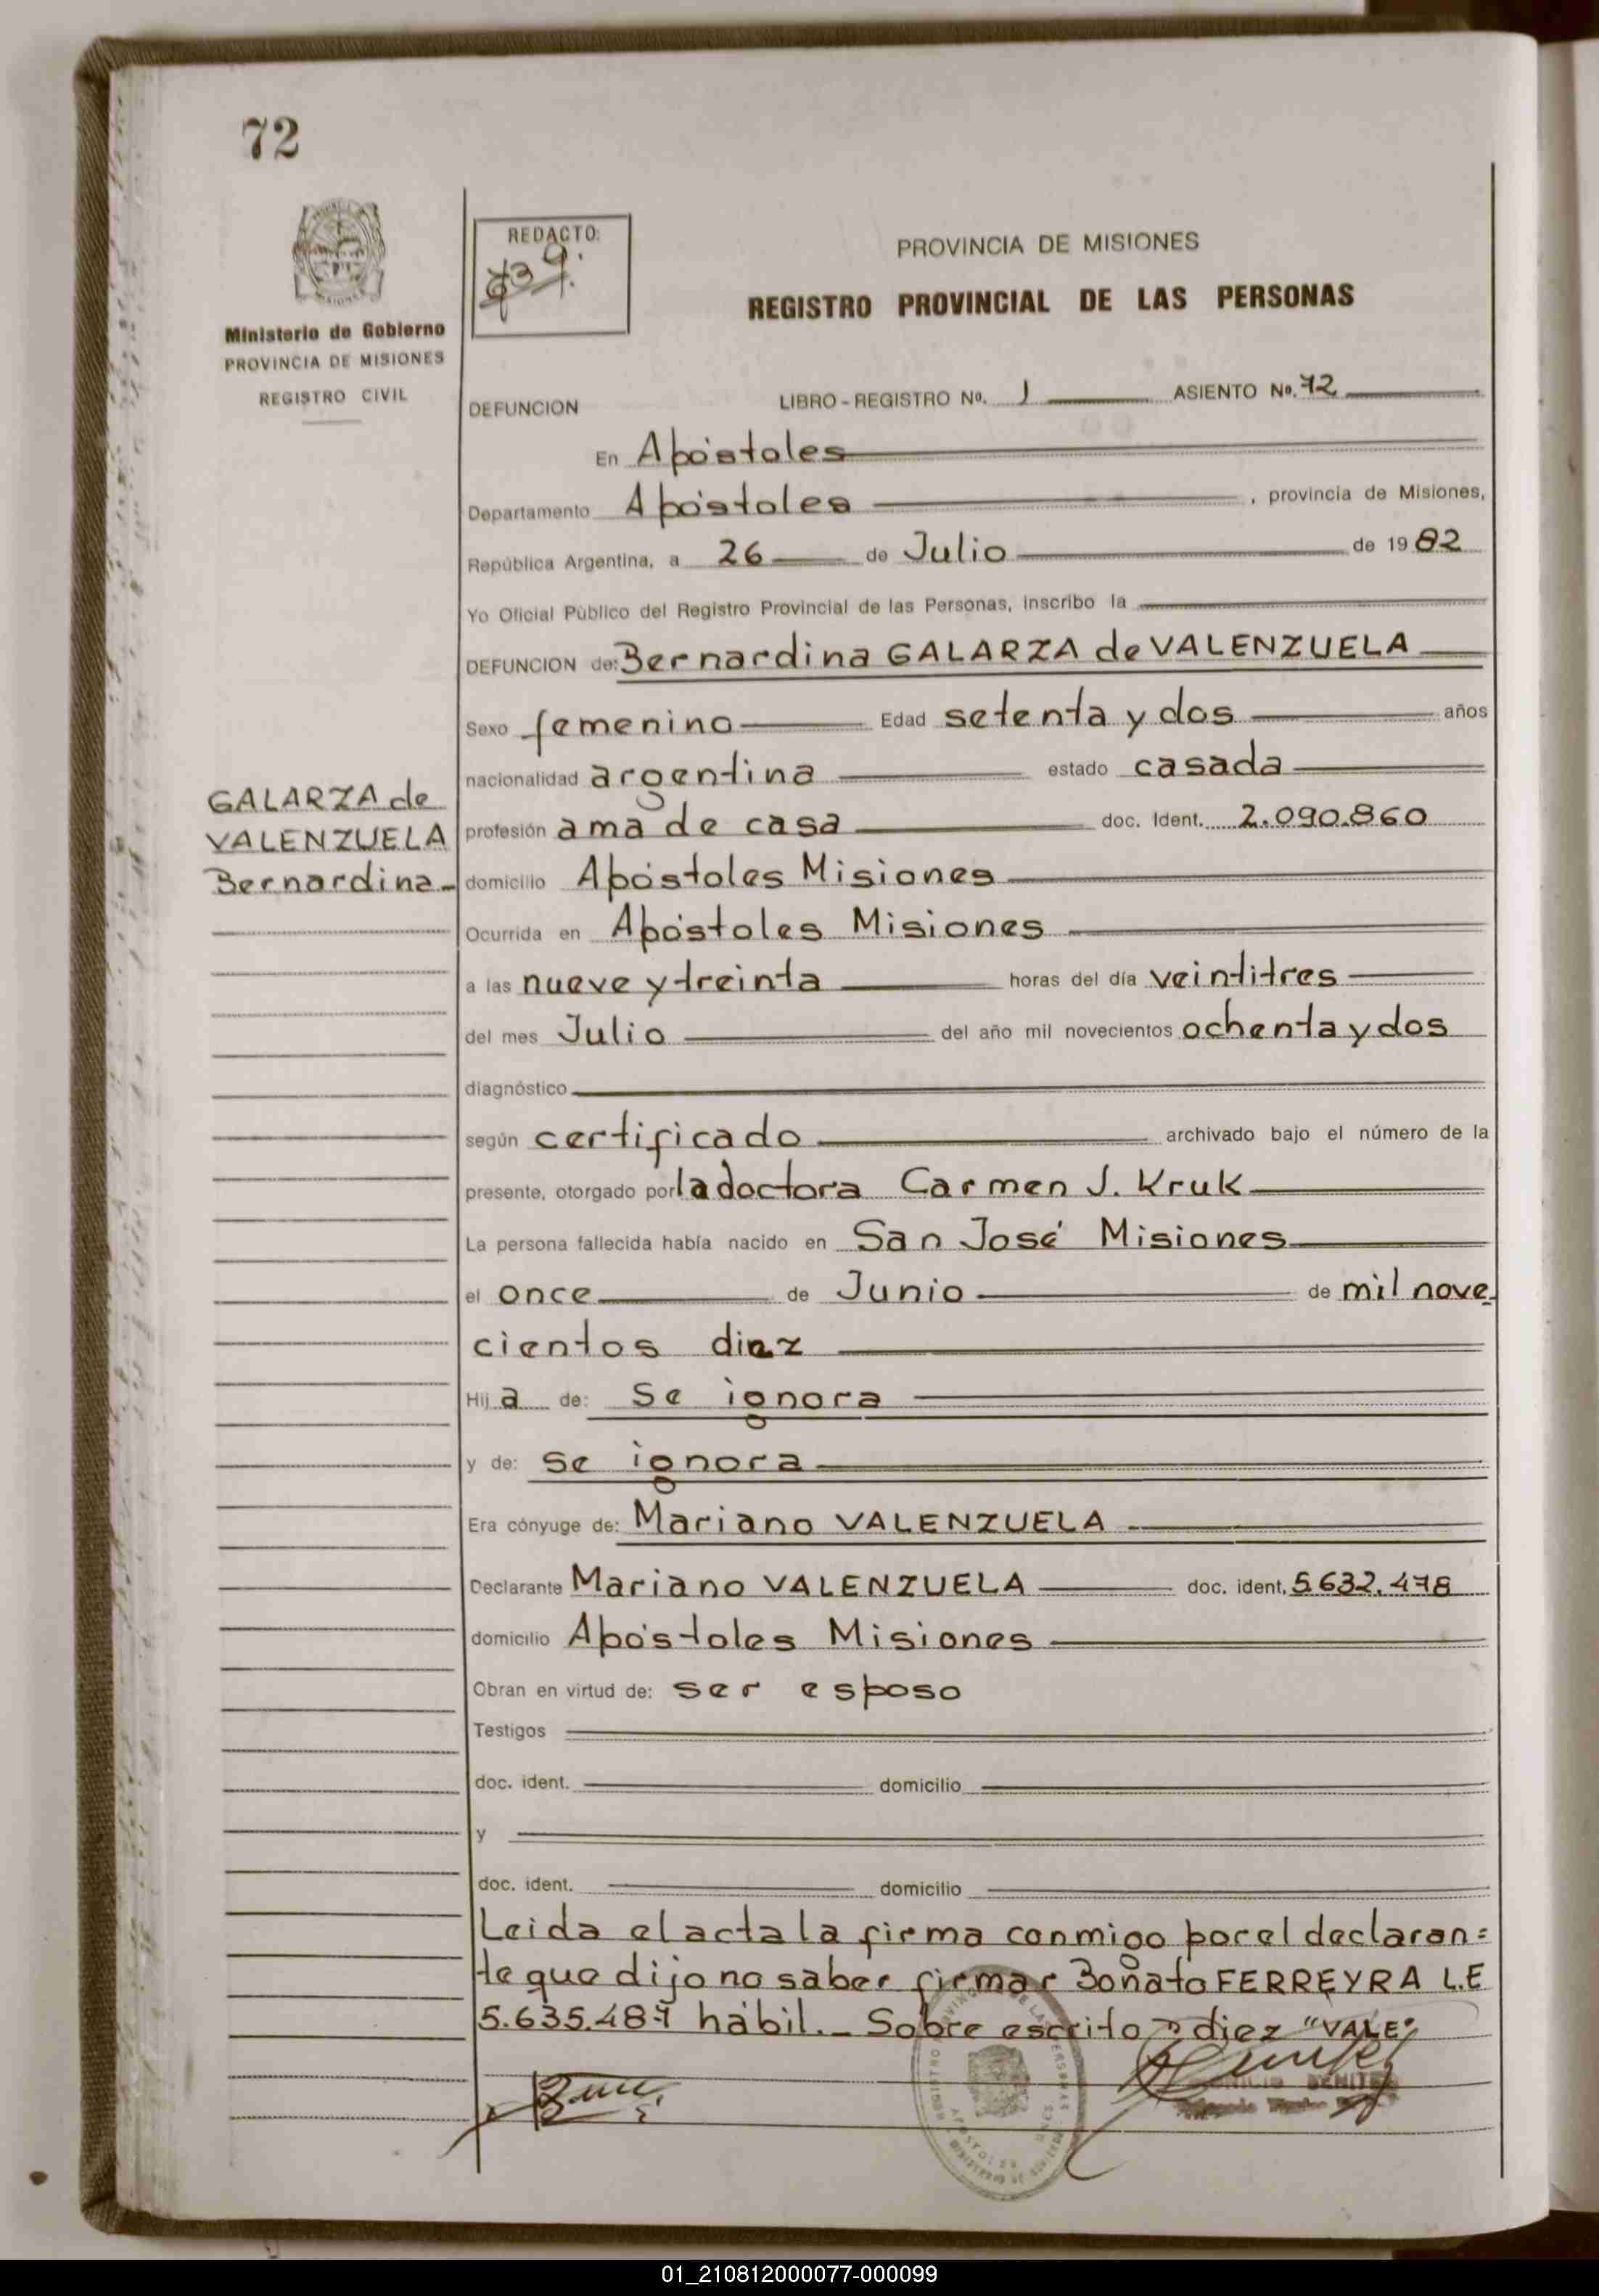 72
Ministerio de Gobierno
PROVINCIA DE MISIONES
REGISTRO CIVIL
REDACTO:
PROVINCIA DE MISIONES
REGISTRO PROVINCIAL DE LAS PERSONAS
DEFUNCION LIBRO - REGISTRO No. 1 ASIENTO No. 72
En Apóstoles
Departamento Apóstoles , provincia de Misiones,
República Argentina, a 26 de Julio de 1982
Yo Oficial Público del Registro Provincial de las Personas, inscribo la
DEFUNCION de: Bernardina GALARZA de VALENZUELA
Sexo femenino Edad setenta y dos años
nacionalidad argentina estado casada
GALARZA de
VALENZUELA
Bernardina
profesión ama de casa doc. Ident. 2.090.860
domicilio Apóstoles Misiones
Ocurrida en Apóstoles Misiones
a las nueve y treinta horas del día veintitres
del mes Julio del año mil novecientos ochenta y dos
diagnóstico
según certificado archivado bajo el número de la
presente, otorgado por la doctora Carmen J. Kruk
La persona fallecida había nacido en San José Misiones
el once de Junio de mil nove
cientos diez
Hija de: se ignora
y de: se ignora
Era cónyuge de: Mariano VALENZUELA
Declarante Mariano VALENZUELA doc. ident. 5.632.478
domicilio Apóstoles Misiones
Obran en virtud de: ser esposo
Testigos
doc. ident. domicilio
y
doc. ident. domicilio
Leida el acta la firma conmigo por el declaran=
te que dijo no saber firmar Boñato FERREYRA L.E
5.635.487 hábil._ Sobre escrito " diez "VALE"
01_210812000077-000099